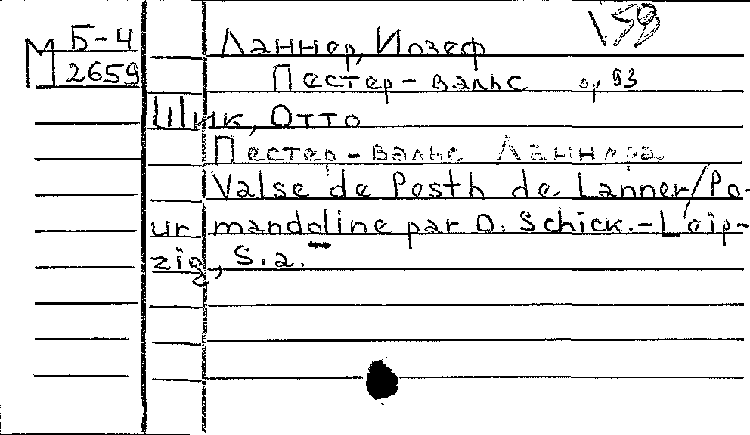 V59
М Б-4
2659
Ланнер, Иозеф
Пестер-вальс op 93
Шик, Отто
Пестер-вальс Ланнера
Valse de Pesth de Lanner/Po-
ur mandoline par O. Schick.-Leip-
zig, S.a.